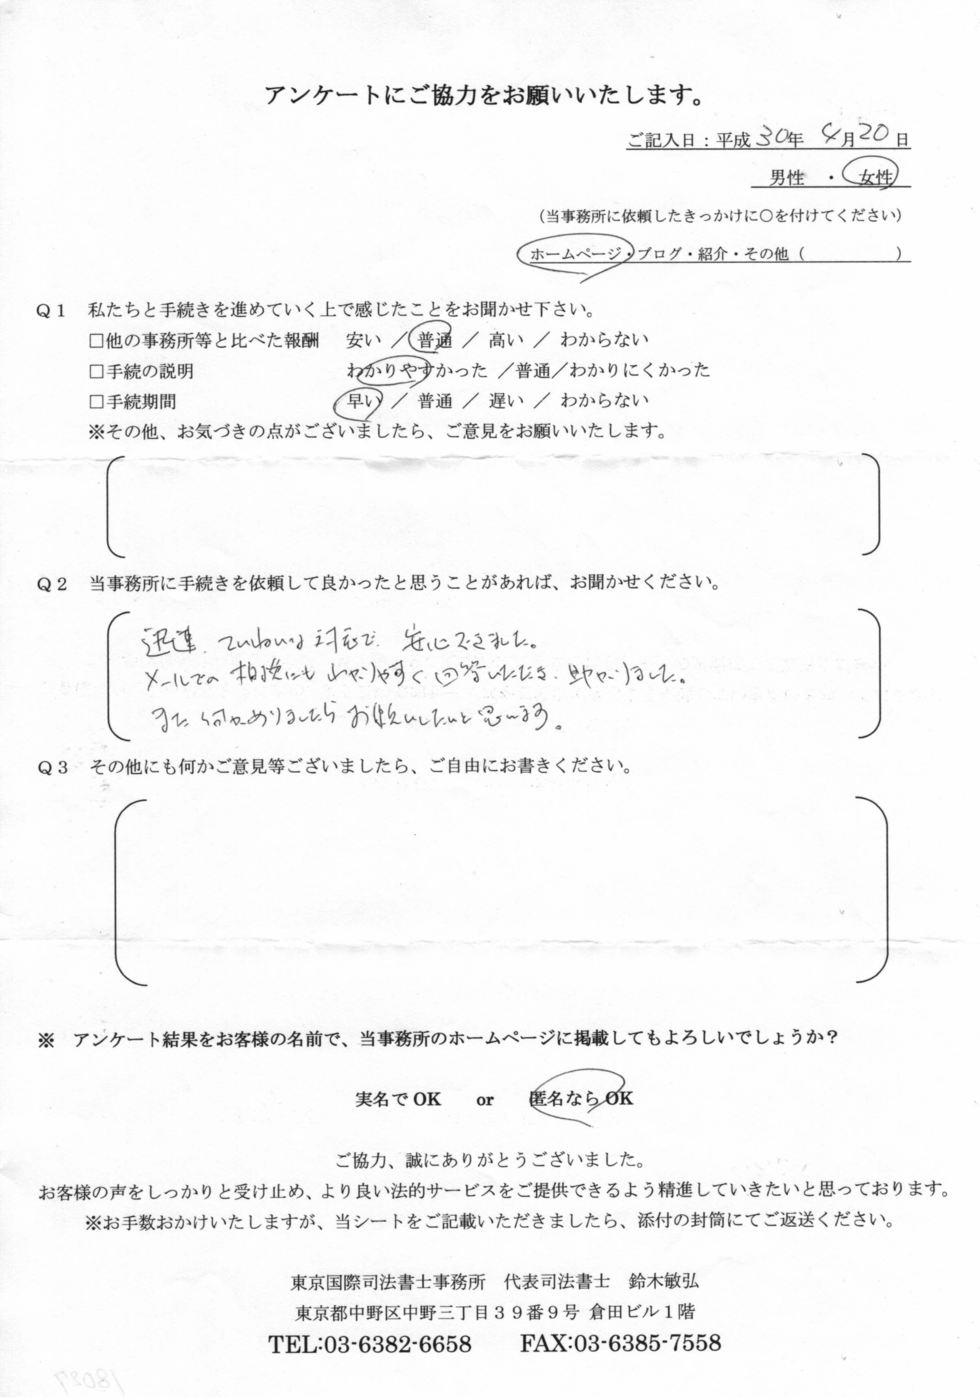 アンケートにご協力をお願いいたします。
ご記入日：平成30年 4月20日
男性 ・ 女性
（当事務所に依頼したきっかけに○を付けてください）
ホームページ・ブログ・紹介・その他（　　　　　）
Q1 私たちと手続きを進めていく上で感じたことをお聞かせ下さい。
□他の事務所等と比べた報酬 安い ／ 普通 ／ 高い ／ わからない
□手続の説明 わかりやすかった ／普通／わかりにくかった
□手続期間 早い ／ 普通 ／ 遅い ／ わからない
※その他、お気づきの点がございましたら、ご意見をお願いいたします。
Q2 当事務所に手続きを依頼して良かったと思うことがあれば、お聞かせください。
迅速、ていねいな対応で、安心できました。
メールでの相談にもわかりやすく回答いただき、助かりました。
また何かありましたらお願いしたいと思います。
Q3 その他にも何かご意見等ございましたら、ご自由にお書きください。
※ アンケート結果をお客様の名前で、当事務所のホームページに掲載してもよろしいでしょうか？
実名でOK or 匿名ならOK
ご協力、誠にありがとうございました。
お客様の声をしっかりと受け止め、より良い法的サービスをご提供できるよう精進していきたいと思っております。
※お手数おかけいたしますが、当シートをご記載いただきましたら、添付の封筒にてご返送ください。
東京国際司法書士事務所 代表司法書士 鈴木敏弘
東京都中野区中野三丁目39番9号 倉田ビル1階
TEL:03-6382-6658 FAX:03-6385-7558